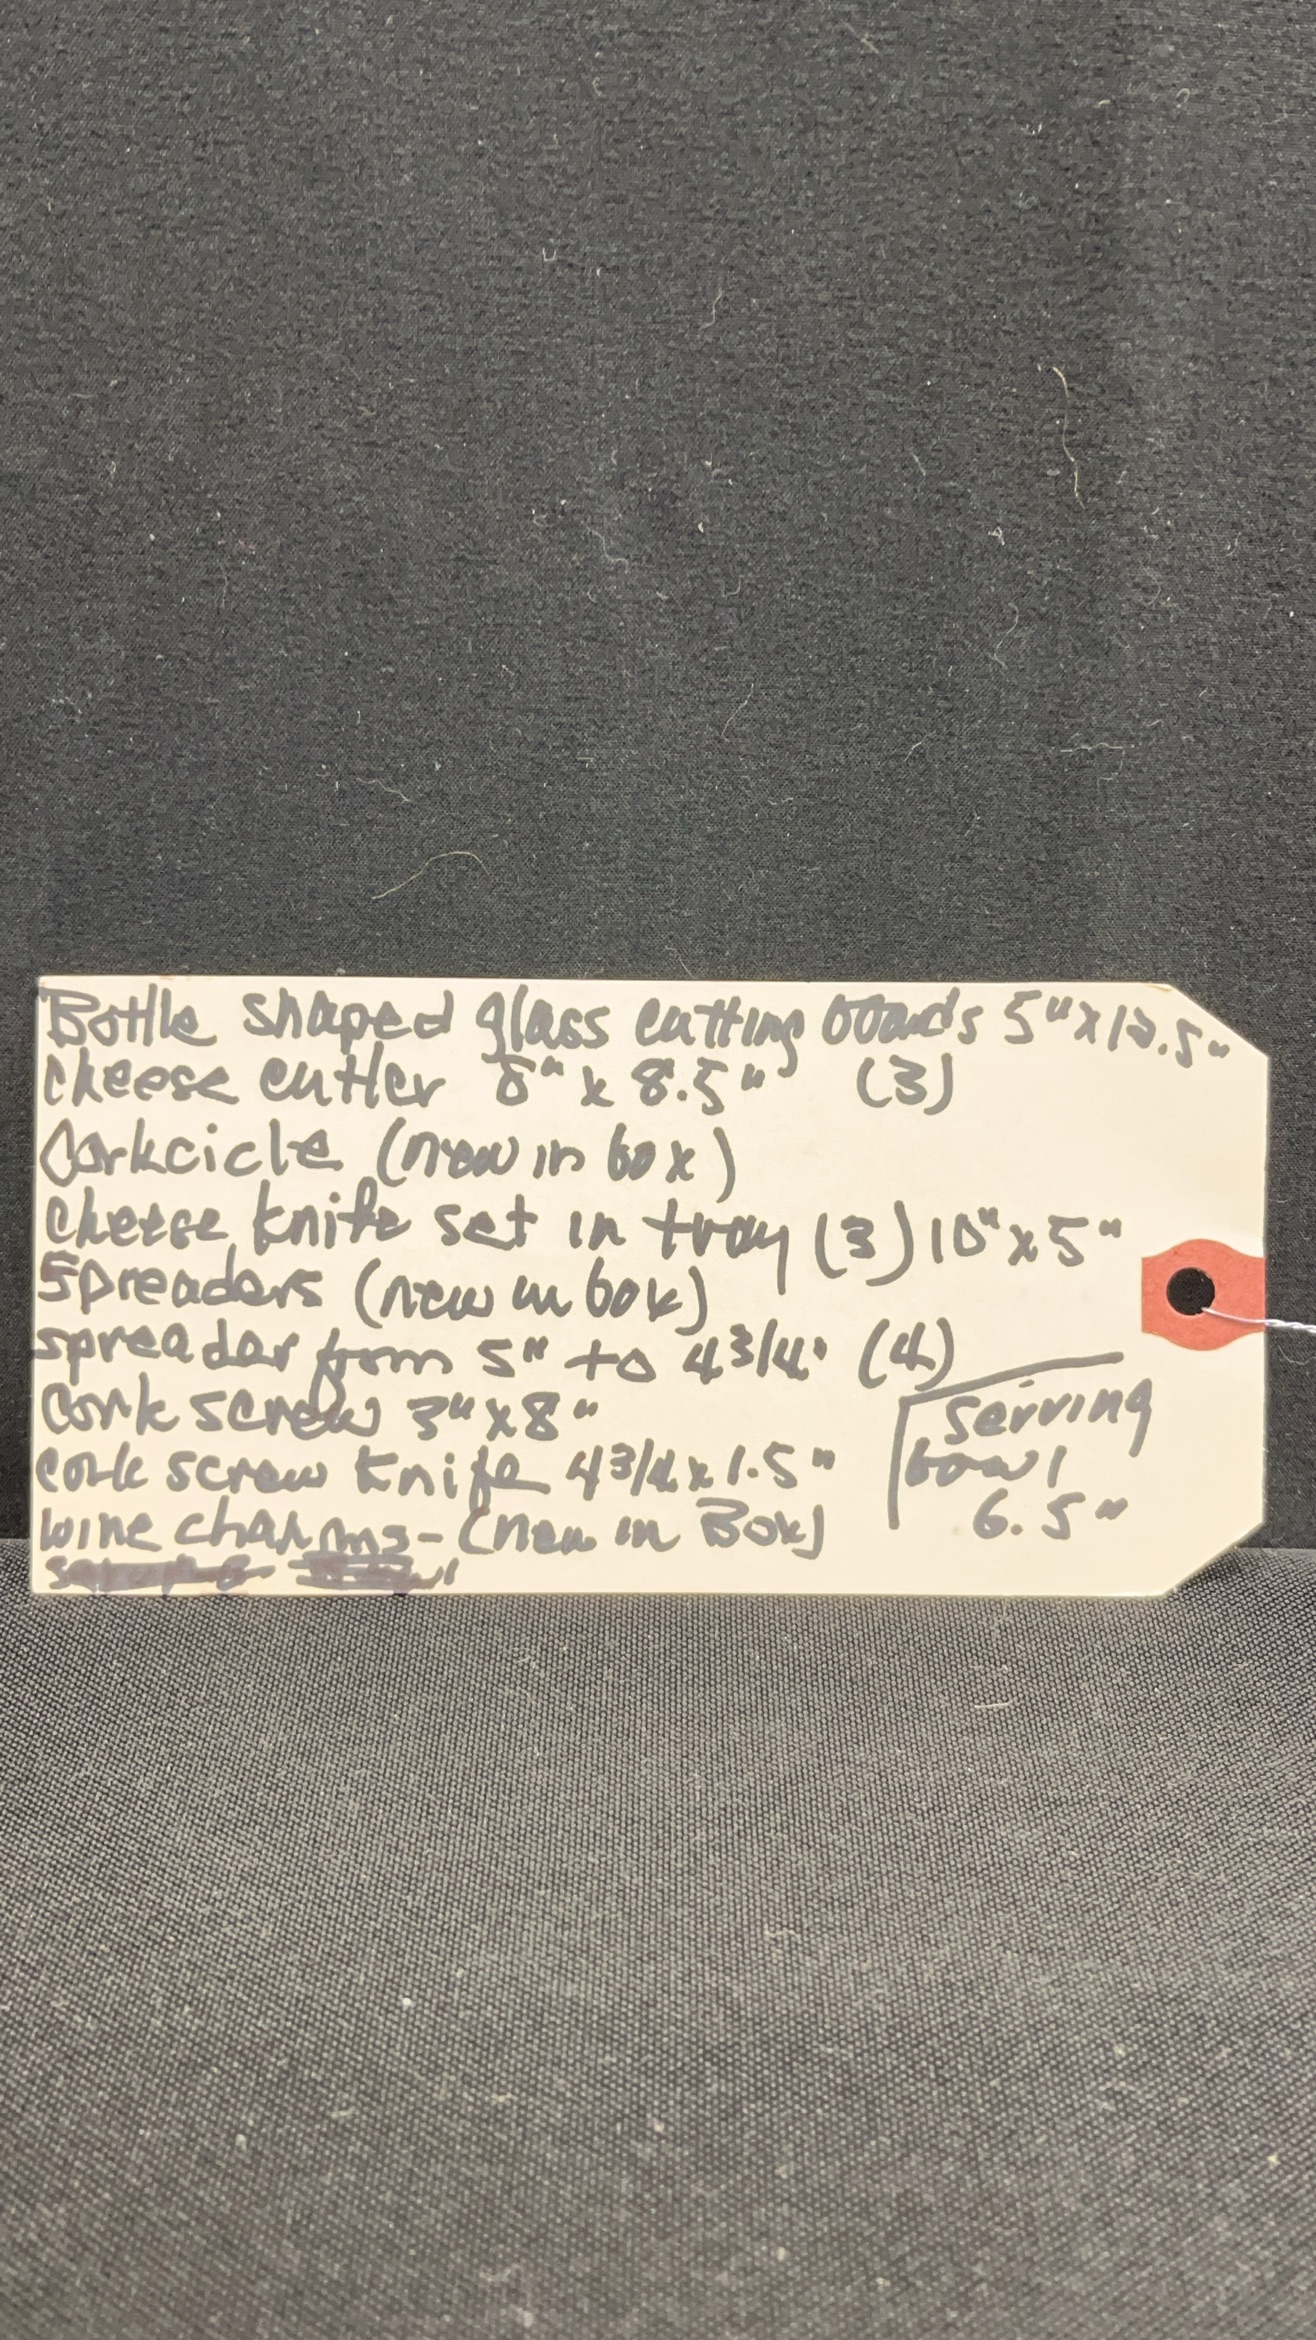 Bottle shaped glass cutting boards 5" x 12.5"
cheese cutter 8" x 8.5" (3)
Corkcicle (new in box)
cheese knife set in tray (3) 10" x 5"
Spreaders (new in box)
spreader from 5" to 4 3/4" (4)
Cork screw 3" x 8"
cork screw knife 4 3/4 x 1.5"
wine charms - (new in Box)
serving
bowl
6.5"